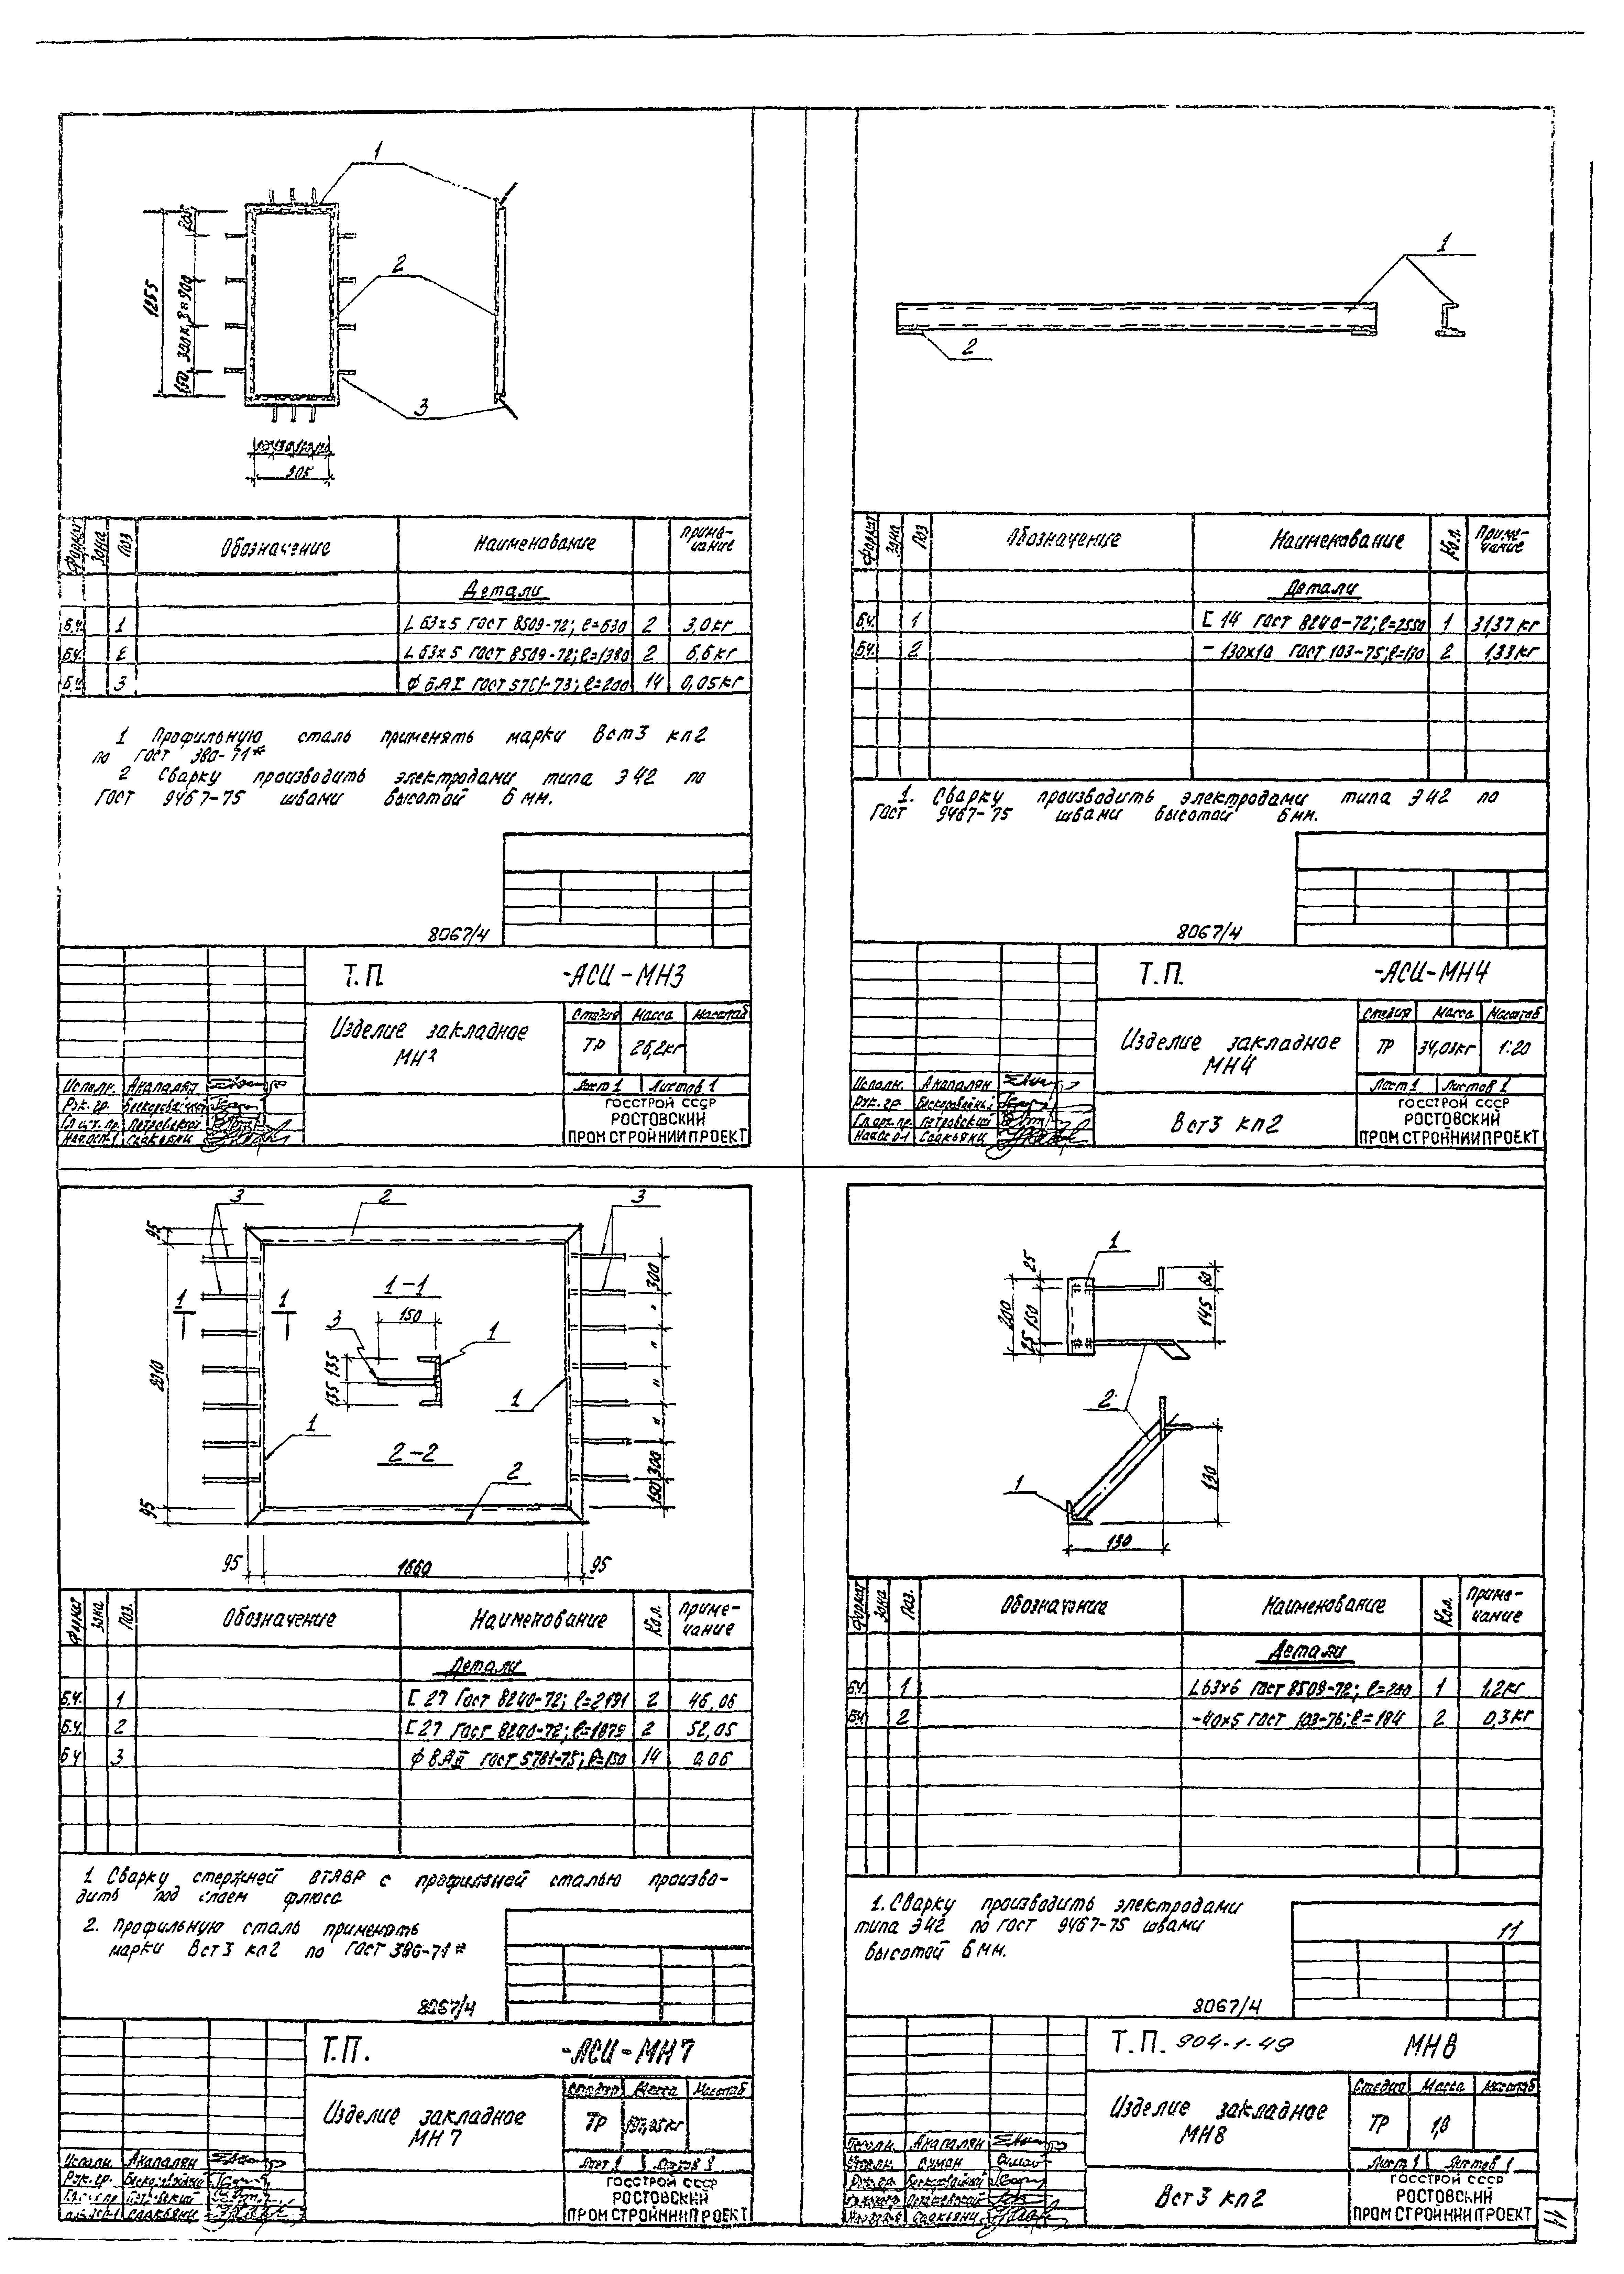 1
2
3
1255
300 x 3 = 900
150
905
Формат Зона Поз Обозначение Наименование Приме-чание
Детали
Б.ч. 1 L 63×5 ГОСТ 8509-72; ℓ=630 2 3,0кг
Б.ч. 2 L 63×5 ГОСТ 8509-72; ℓ=1380 2 6,6кг
Б.ч. 3 ϕ 6AI ГОСТ 5781-73; ℓ=200 14 0,05кг
1 Профильную сталь применять марки Вст3 кп2
по ГОСТ 380-71*
2 Сварку производить электродами типа Э42 по
ГОСТ 9467-75 швами высотой 6 мм.
8067/4
Т.П. -АСИ-МН3
Изделие закладное
МН3
Стадия Масса Масштаб
ТР 26,2кг
Лист 1 Листов 1
Исполн. Акапалян
Рук. гр. Бескоровайный
Гл.инж.пр. Петровский
Нач.осп-1 Саакьянц
ГОССТРОЙ СССР
РОСТОВСКИЙ
ПРОМСТРОЙНИИПРОЕКТ
1
2
Формат Зона Поз Обозначение Наименование Кол. Приме-чание
Детали
Б.ч. 1 [ 14 ГОСТ 8240-72; ℓ=2550 1 31,37 кг
Б.ч. 2 - 130×10 ГОСТ 103-75; ℓ=130 2 1,33кг
1. Сварку производить электродами типа Э42 по
ГОСТ 9467-75 швами высотой 6мм.
8067/4
Т.П. -АСИ-МН4
Изделие закладное
МН4
Стадия Масса Масштаб
ТР 34,03кг 1:20
Лист 1 Листов 1
Исполн. Акапалян
Рук. гр Бескоровайный
Петровский
Саакьянц
Вст3 кп2
ГОССТРОЙ СССР
РОСТОВСКИЙ
ПРОМСТРОЙНИИПРОЕКТ
3 2 3
95
300
1-1
1 1
150
3 1
135
135
2010
1 1
2-2
2
300
150
95
95 1660 95
Формат Зона Поз. Обозначение Наименование Кол. Приме-чание
Детали
Б.ч. 1 [ 27 ГОСТ 8240-72; ℓ=2191 2 46,06
Б.ч. 2 [ 27 ГОСТ 8240-72; ℓ=1879 2 52,05
Б ч 3 ϕ 8AII ГОСТ 5781-75; ℓ=150 14 0,06
1 Сварку стержней втавр с профильной сталью произво-
дить под слоем флюса
2. Профильную сталь применять
марки Вст3 кп2 по ГОСТ 380-71*
8067/4
Т.П. -АСИ-МН7
Изделие закладное
МН7
Стадия Масса Масштаб
ТР
Лист 1 Листов 1
Исполн. Акапалян
Рук. гр. Бескоровайный
Петровский
Саакьянц
ГОССТРОЙ СССР
РОСТОВСКИЙ
ПРОМСТРОЙНИИПРОЕКТ
1
25
60
200 150 145
25
2
1
130
130
Формат Зона Поз. Обозначение Наименование Кол. Приме-чание
Детали
Б.ч. 1 L63×6 ГОСТ 8509-72; ℓ=200 1 1,2кг
Б.ч 2 -40×5 ГОСТ 103-76; ℓ=184 2 0,3кг
1. Сварку производить электродами
типа Э42 по ГОСТ 9467-75 швами
высотой 6мм.
11
8067/4
Т.П. 904-1-49 МН8
Изделие закладное
МН8
Стадия Масса Масштаб
ТР 1,8
Лист 1 Листов 1
Исполн. Акапалян
Бескоровайный
Саакьянц
Вст3 кп2
ГОССТРОЙ СССР
РОСТОВСКИЙ
ПРОМСТРОЙНИИПРОЕКТ
11